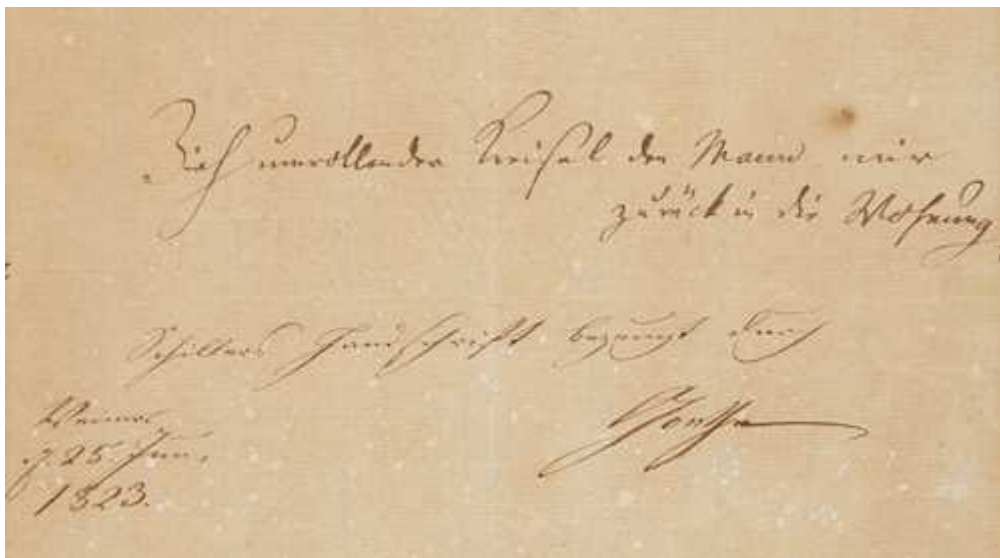 Zieh umrollender Kreisel den Mann mir
zurück in die Wohnung
Schillers Handschrift bezeugt durch
Goethe
Weimar
d. 25 Jun.
1823.